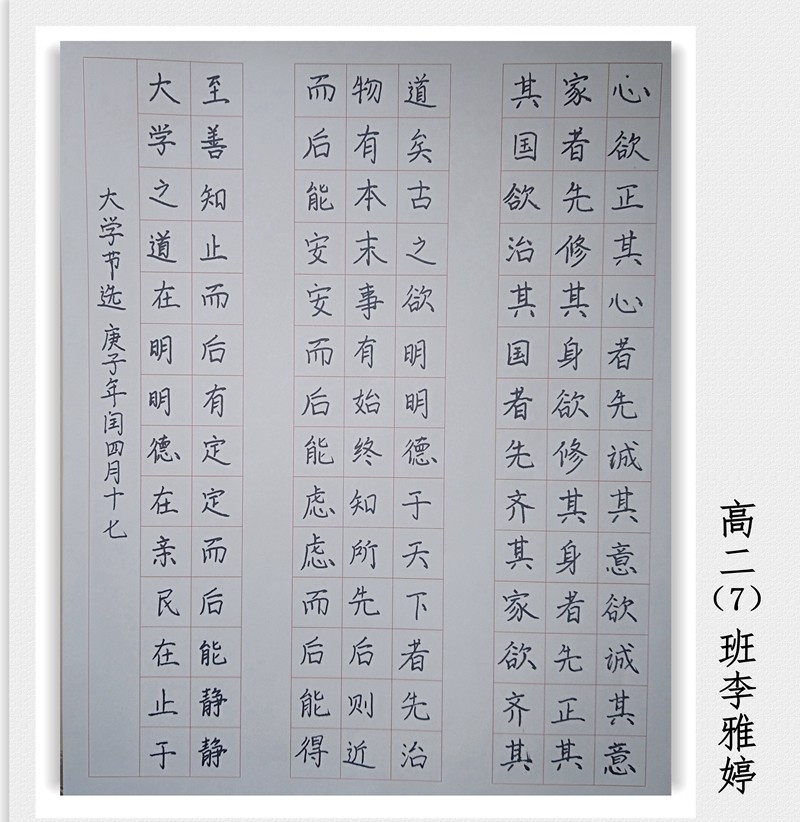 大学节选 庚子年闰四月十七
大学之道在明明德在亲民在止于
至善知止而后有定定而后能静静
而后能安安而后能虑虑而后能得
物有本末事有始终知所先后则近
道矣古之欲明明德于天下者先治
其国欲治其国者先齐其家欲齐其
家者先修其身欲修其身者先正其
心欲正其心者先诚其意欲诚其意
高二（7）班李雅婷